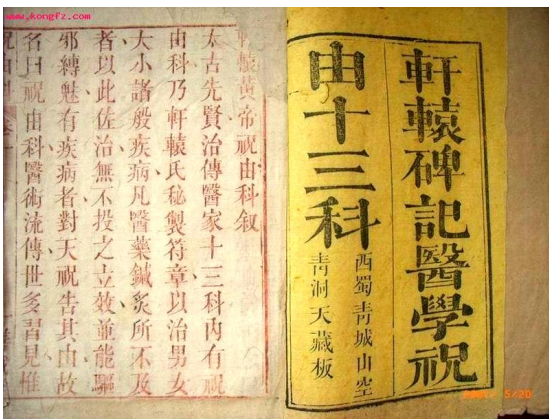 www.kongfz.com
軒轅碑記醫學祝
由十三科
西蜀青城山空
青洞天藏板
軒轅黃帝祝由科叙
太古先賢治傳醫家十三科內有祝
由科乃軒轅氏秘製符章以治男女
大小諸般疾病凡醫藥鍼炙所不及
者以此佐治無不投之立效並能驅
邪縛魅有疾病者對天祝告其由故
名曰祝由科醫術流傳世多習見惟
祝由科
5/20